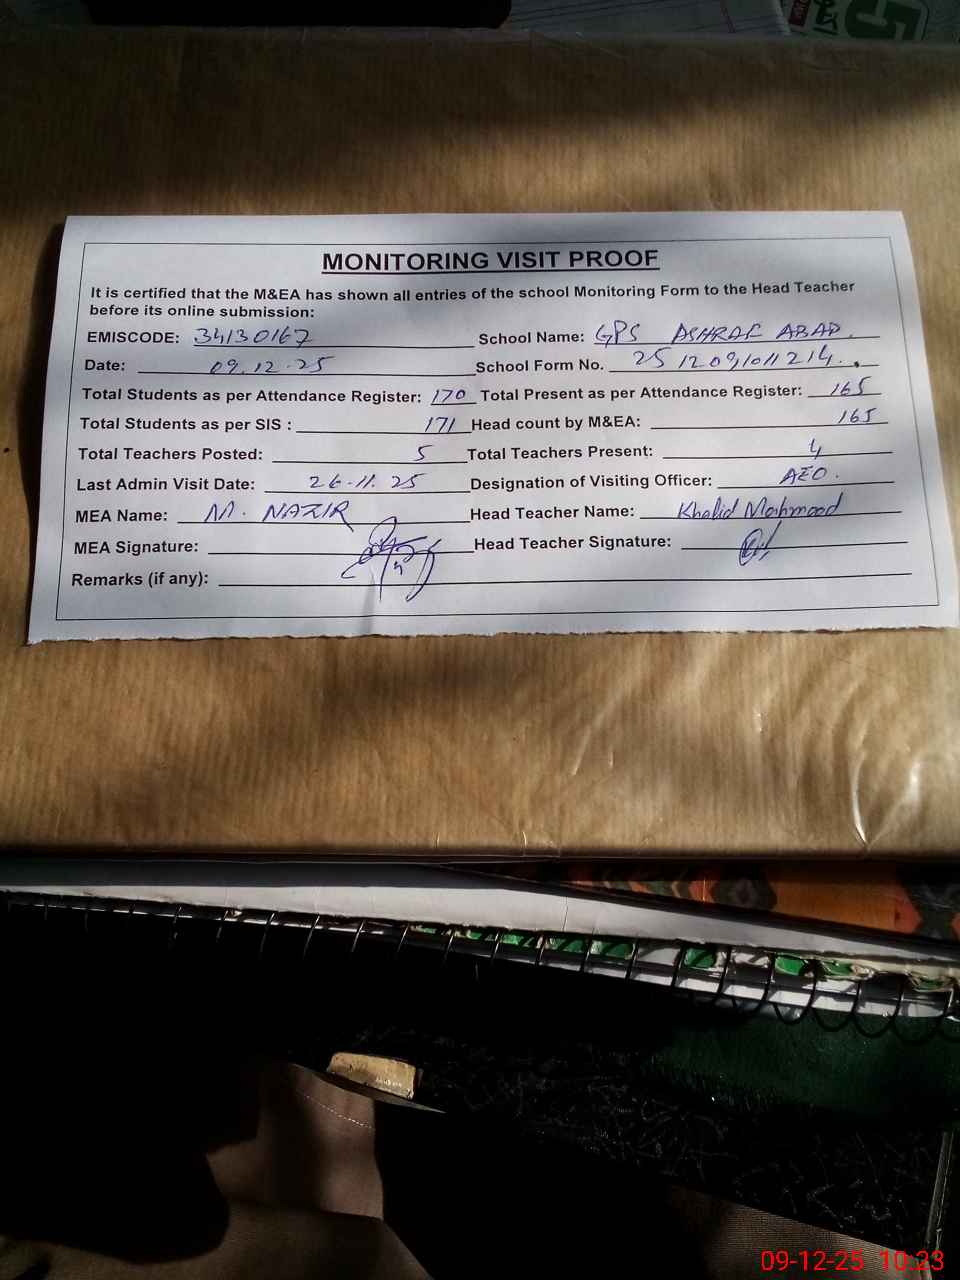 MONITORING VISIT PROOF
It is certified that the M&EA has shown all entries of the school Monitoring Form to the Head Teacher
before its online submission:
EMISCODE: 34130167 School Name: GPS ASHRAF ABAD.
Date: 09.12.25 School Form No. 2512091011214.
Total Students as per Attendance Register: 170 Total Present as per Attendance Register: 165
Total Students as per SIS : 171 Head count by M&EA: 165
Total Teachers Posted: 5 Total Teachers Present: 4
Last Admin Visit Date: 26.11.25 Designation of Visiting Officer: AEO.
MEA Name: M. NAZIR Head Teacher Name: Khalid Mahmood
MEA Signature: Head Teacher Signature:
Remarks (if any):
09-12-25 10:23